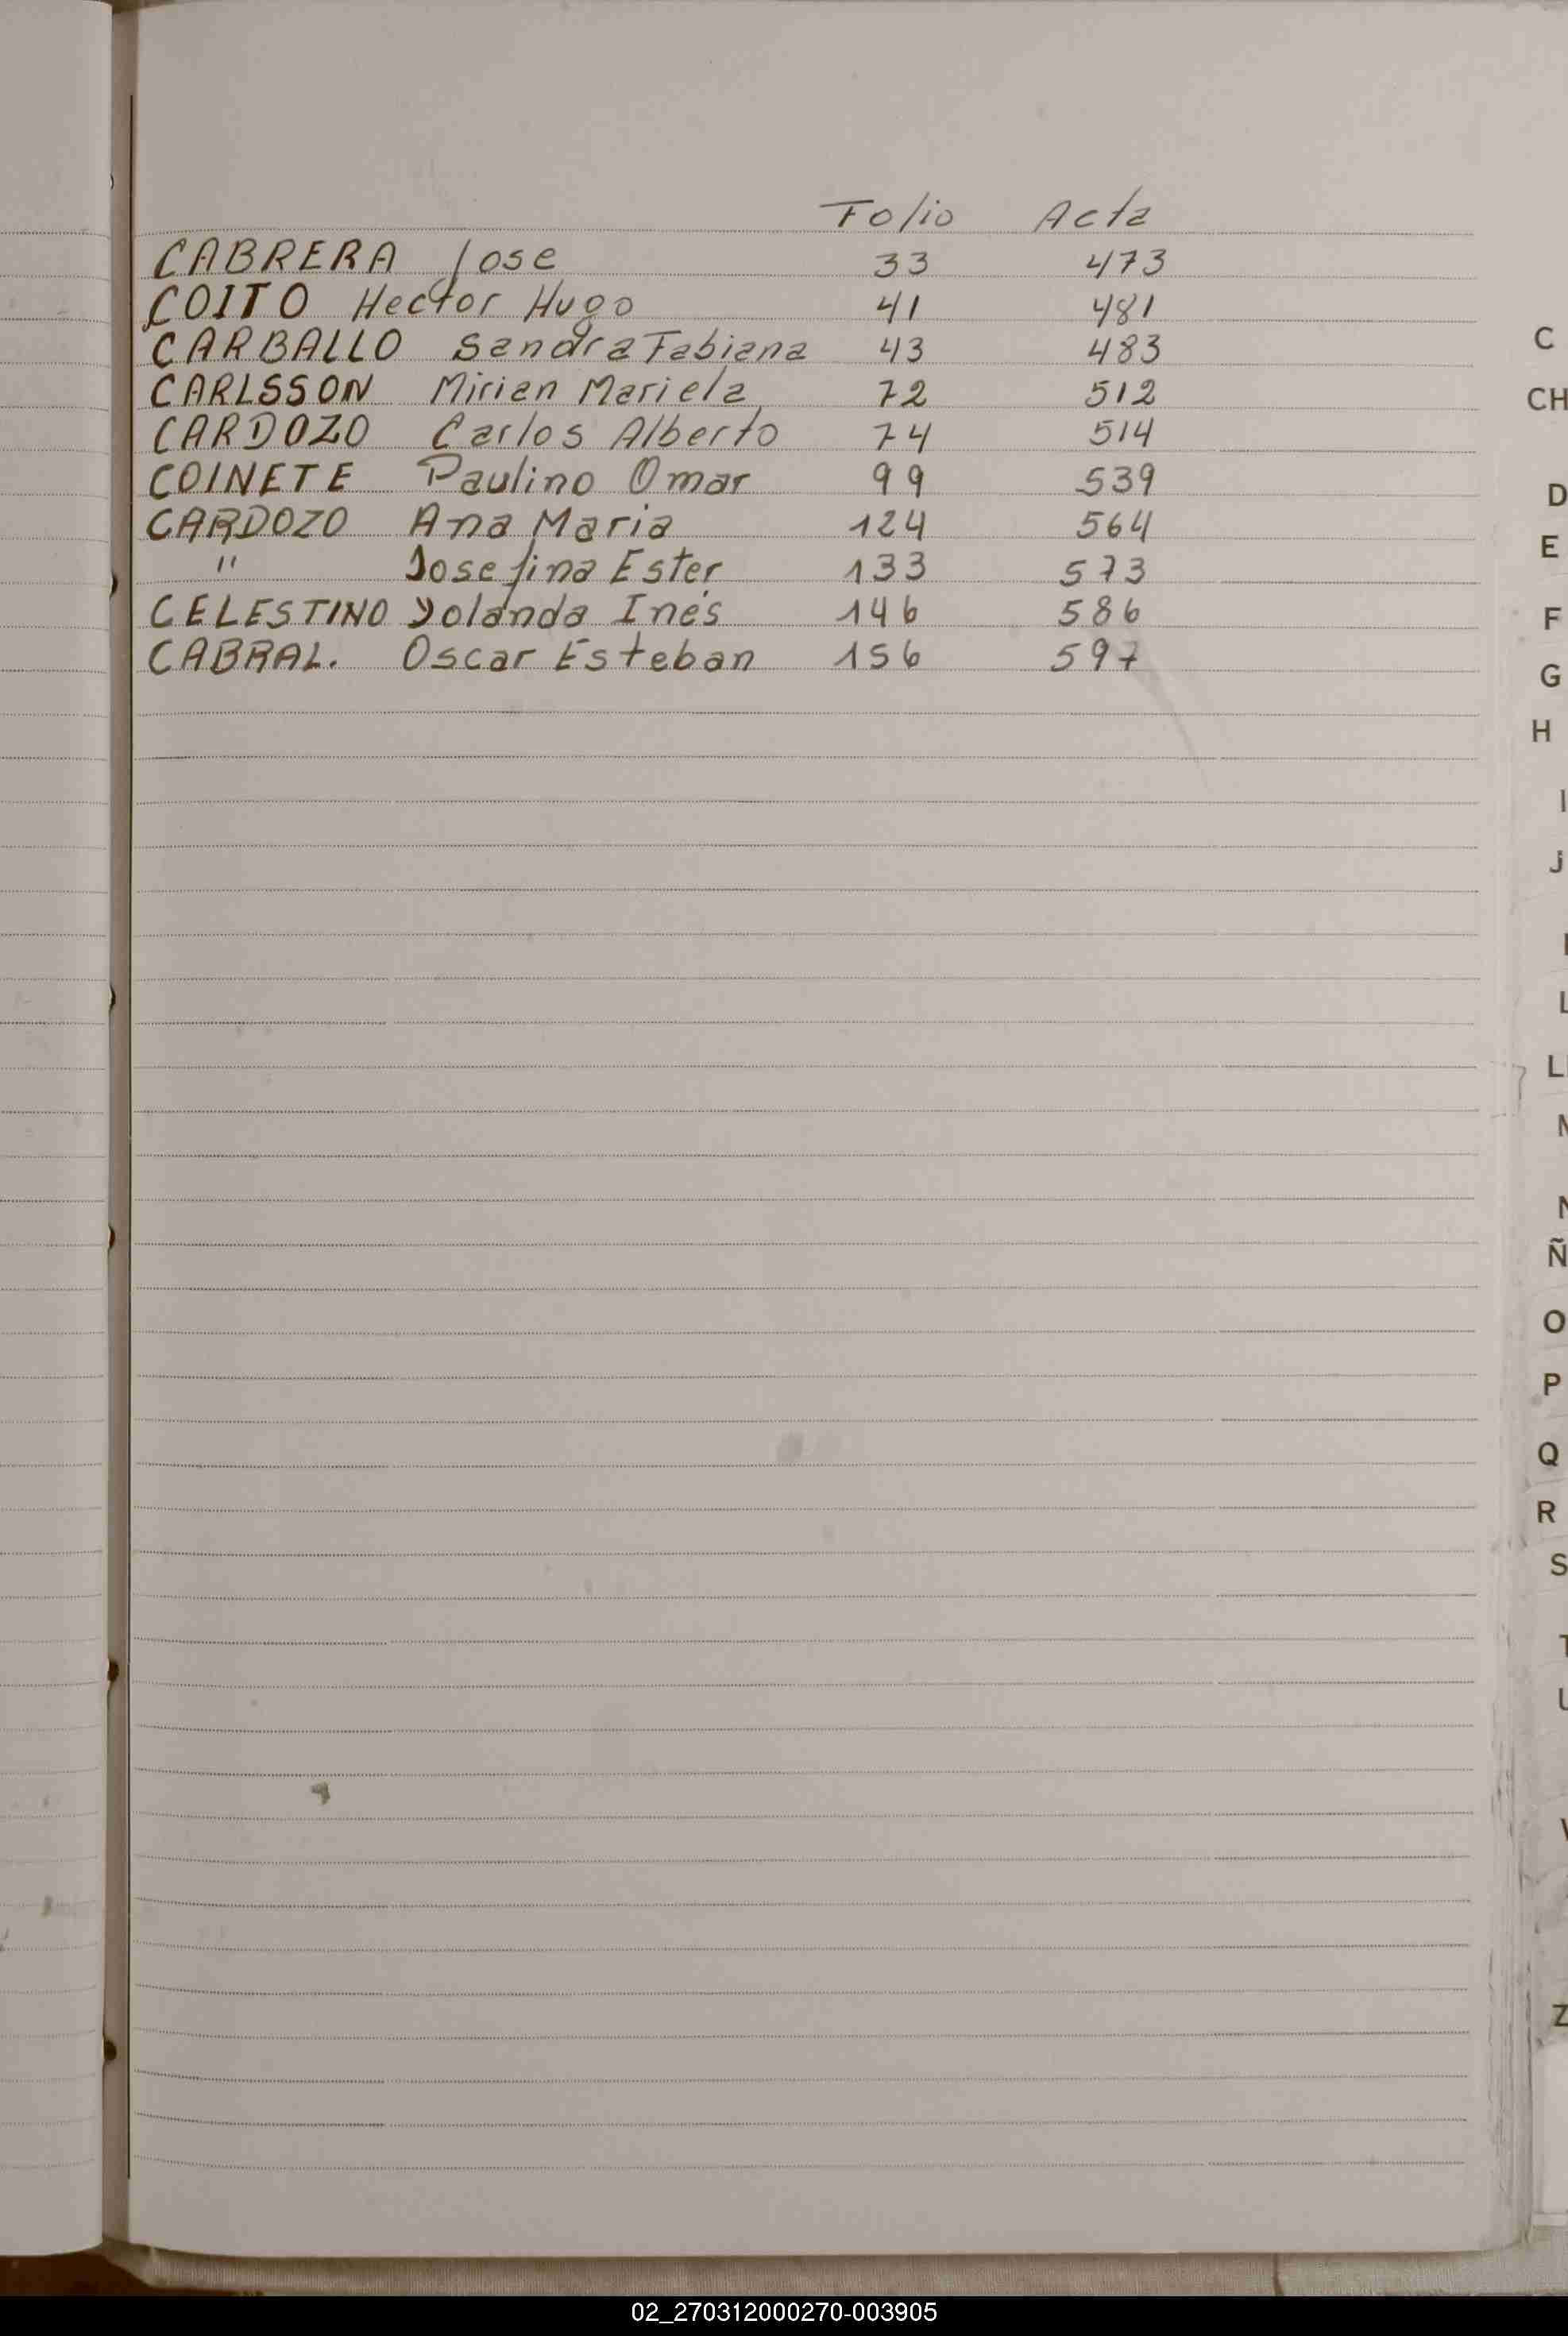 Folio Acta
CABRERA Jose 33 473
COITO Hector Hugo 41 481
CARBALLO Sandra Fabiana 43 483
CARLSSON Mirian Mariela 72 512
CARDOZO Carlos Alberto 74 514
COINETE Paulino Omar 99 539
CARDOZO Ana Maria 124 564
" Josefina Ester 133 573
CELESTINO Yolanda Inés 146 586
CABRAL. Oscar Esteban 156 597
C
CH
D
E
F
G
H
I
J
L
Ñ
O
P
Q
R
S
Z
02_270312000270-003905